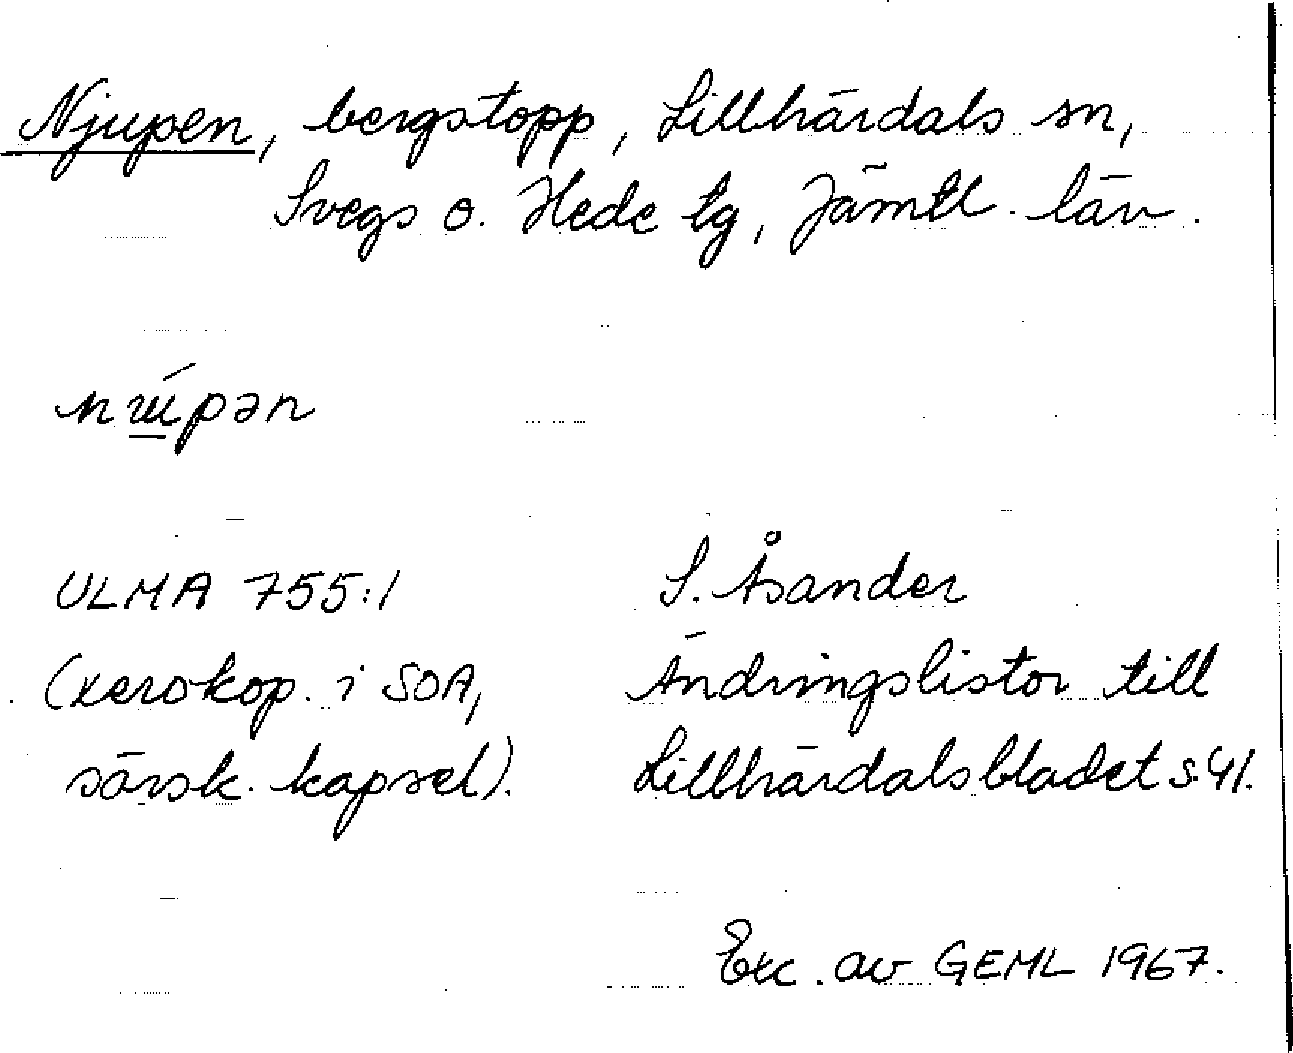 Njupen, bergstopp, Lillhärdals sn,
Svegs o. Hede tg, Jämtl. län.
ULMA 755:1
(xerokop. i SOA,
särsk. kapsel).
S. Åsander
Ändringslistor till
Lillhärdalsbladet s. 41.
Exc. av GEML 1967.